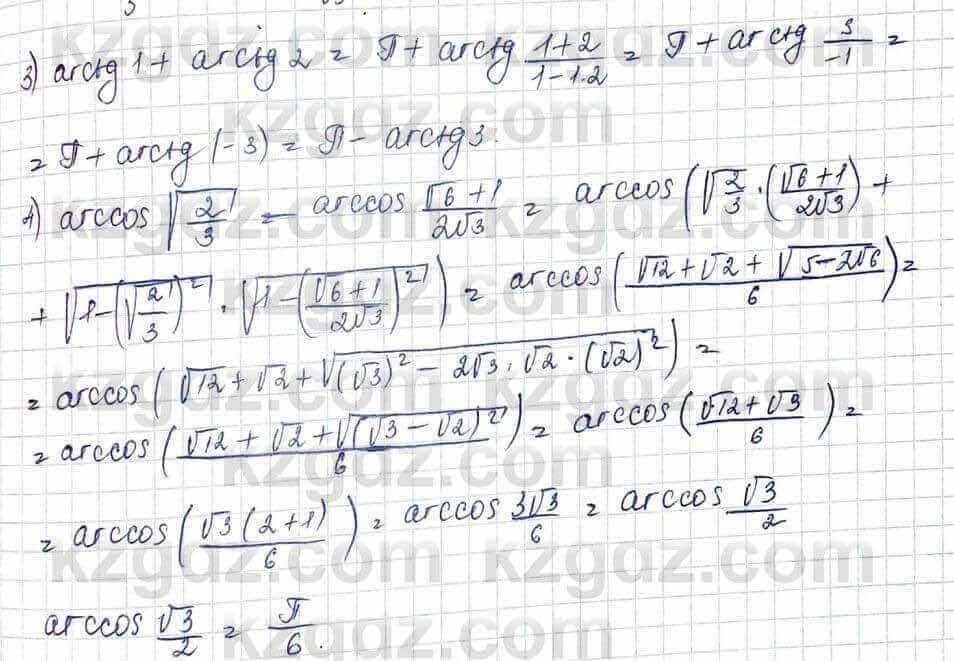 3) arctg 1 + arctg 2 = π + arctg (1+2)/(1−1·2) = π + arctg 3/−1 =
= π + arctg (−3) = π − arctg 3.
4) arccos √(2/3) − arccos (√6+1)/(2√3) = arccos(√(2/3) · ((√6+1)/(2√3)) +
+ √(1−(√(2/3))²) · √(1−((√6+1)/(2√3))²)) = arccos((√12+√2+√(5−2√6))/6) =
= arccos(√12+√2+√((√3)²−2√3·√2·(√2)²)) =
= arccos((√12+√2+√((√3−√2)²))/6) = arccos((√12+√3)/6) =
= arccos((√3(2+1))/6) = arccos 3√3/6 = arccos √3/2
arccos √3/2 = π/6.
kzgdz.com kzgdz.com
kzgdz.com kzgdz.com
kzgdz.com kzgdz.com
kzgdz.com kzgdz.com
kzgdz.com kzgdz.com
kzgdz.com kzgdz.com
kzgdz.com kzgdz.com